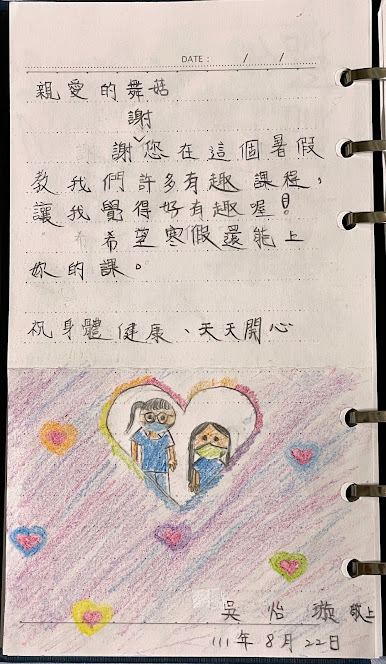 DATE: / /
親愛的舞菇
謝
謝您在這個暑假
教我們許多有趣課程,
讓我覺得好有趣喔!
希望寒假還能上
妳的課。
祝身體健康、天天開心
吳怡璇 敬上
111年8月22日